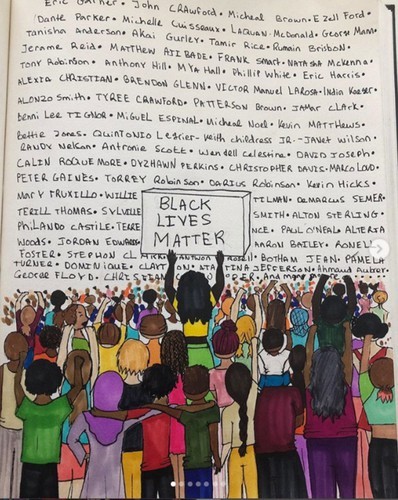 Eric Garner • John CRAWford • Micheal Brown • Ezell Ford •
Dante Parker • Michelle Cusseaux • LAQUAN McDonald • George Mann •
Tanisha Anderson • Akai Gurley • Tamir Rice • Rumain Brisbon •
Jerame Reid • MATTHEW AJIBADE • FRANK SMART • NATASHA McKenna •
Tony Robinson • Anthony Hill • MYA Hall • Phillip White • Eric Harris •
ALEXIA CHRISTIAN • BRENDON GLENN • VICTOR MANUEL LAROSA • India Kager •
ALONZO Smith • TYREE CRAWFORD • PATTERSON Brown • JAMAR CLARK •
Benni Lee TIGNOR • MIGUEL ESPINAL • Micheal Noel • Kevin MATTHEWS •
Bettie Jones • QUINTONIO LeGrier • Keith childress JR. • JANET Wilson •
RANDY Nelson • Antronie Scott • Wendell Celestine • DAVID Joseph •
CALIN ROQUEMORE • DYZHAWN PERKINS • CHRISTOPHER DAVIS • MARCO LOUD •
PETER GAINES • TORREY Robinson • DARIUS Robinson • Kevin HICKS •
MARY TRUXILLO • WILLIE TILMAN • DEMARCUS SEMER •
TERILL THOMAS • SYLVILLE SMITH • ALTON STERLING •
PHILANDO CASTILE • TERE NCE • PAUL O'NEAL • ALTERIA
Woods • JORDAN EDWARDS AARON BAILEY • RONELL
FOSTER • STEPHON CL • BOTHAM JEAN • PAMELA
TURNER • DOMINIQUE • CLAYTON TATIANA JEFFERSON • Ahmaud Aubrey •
GEORGE FLOYD • CHRISTIAN COOPER • And many more . . . .
BLACK
LIVES
MATTER